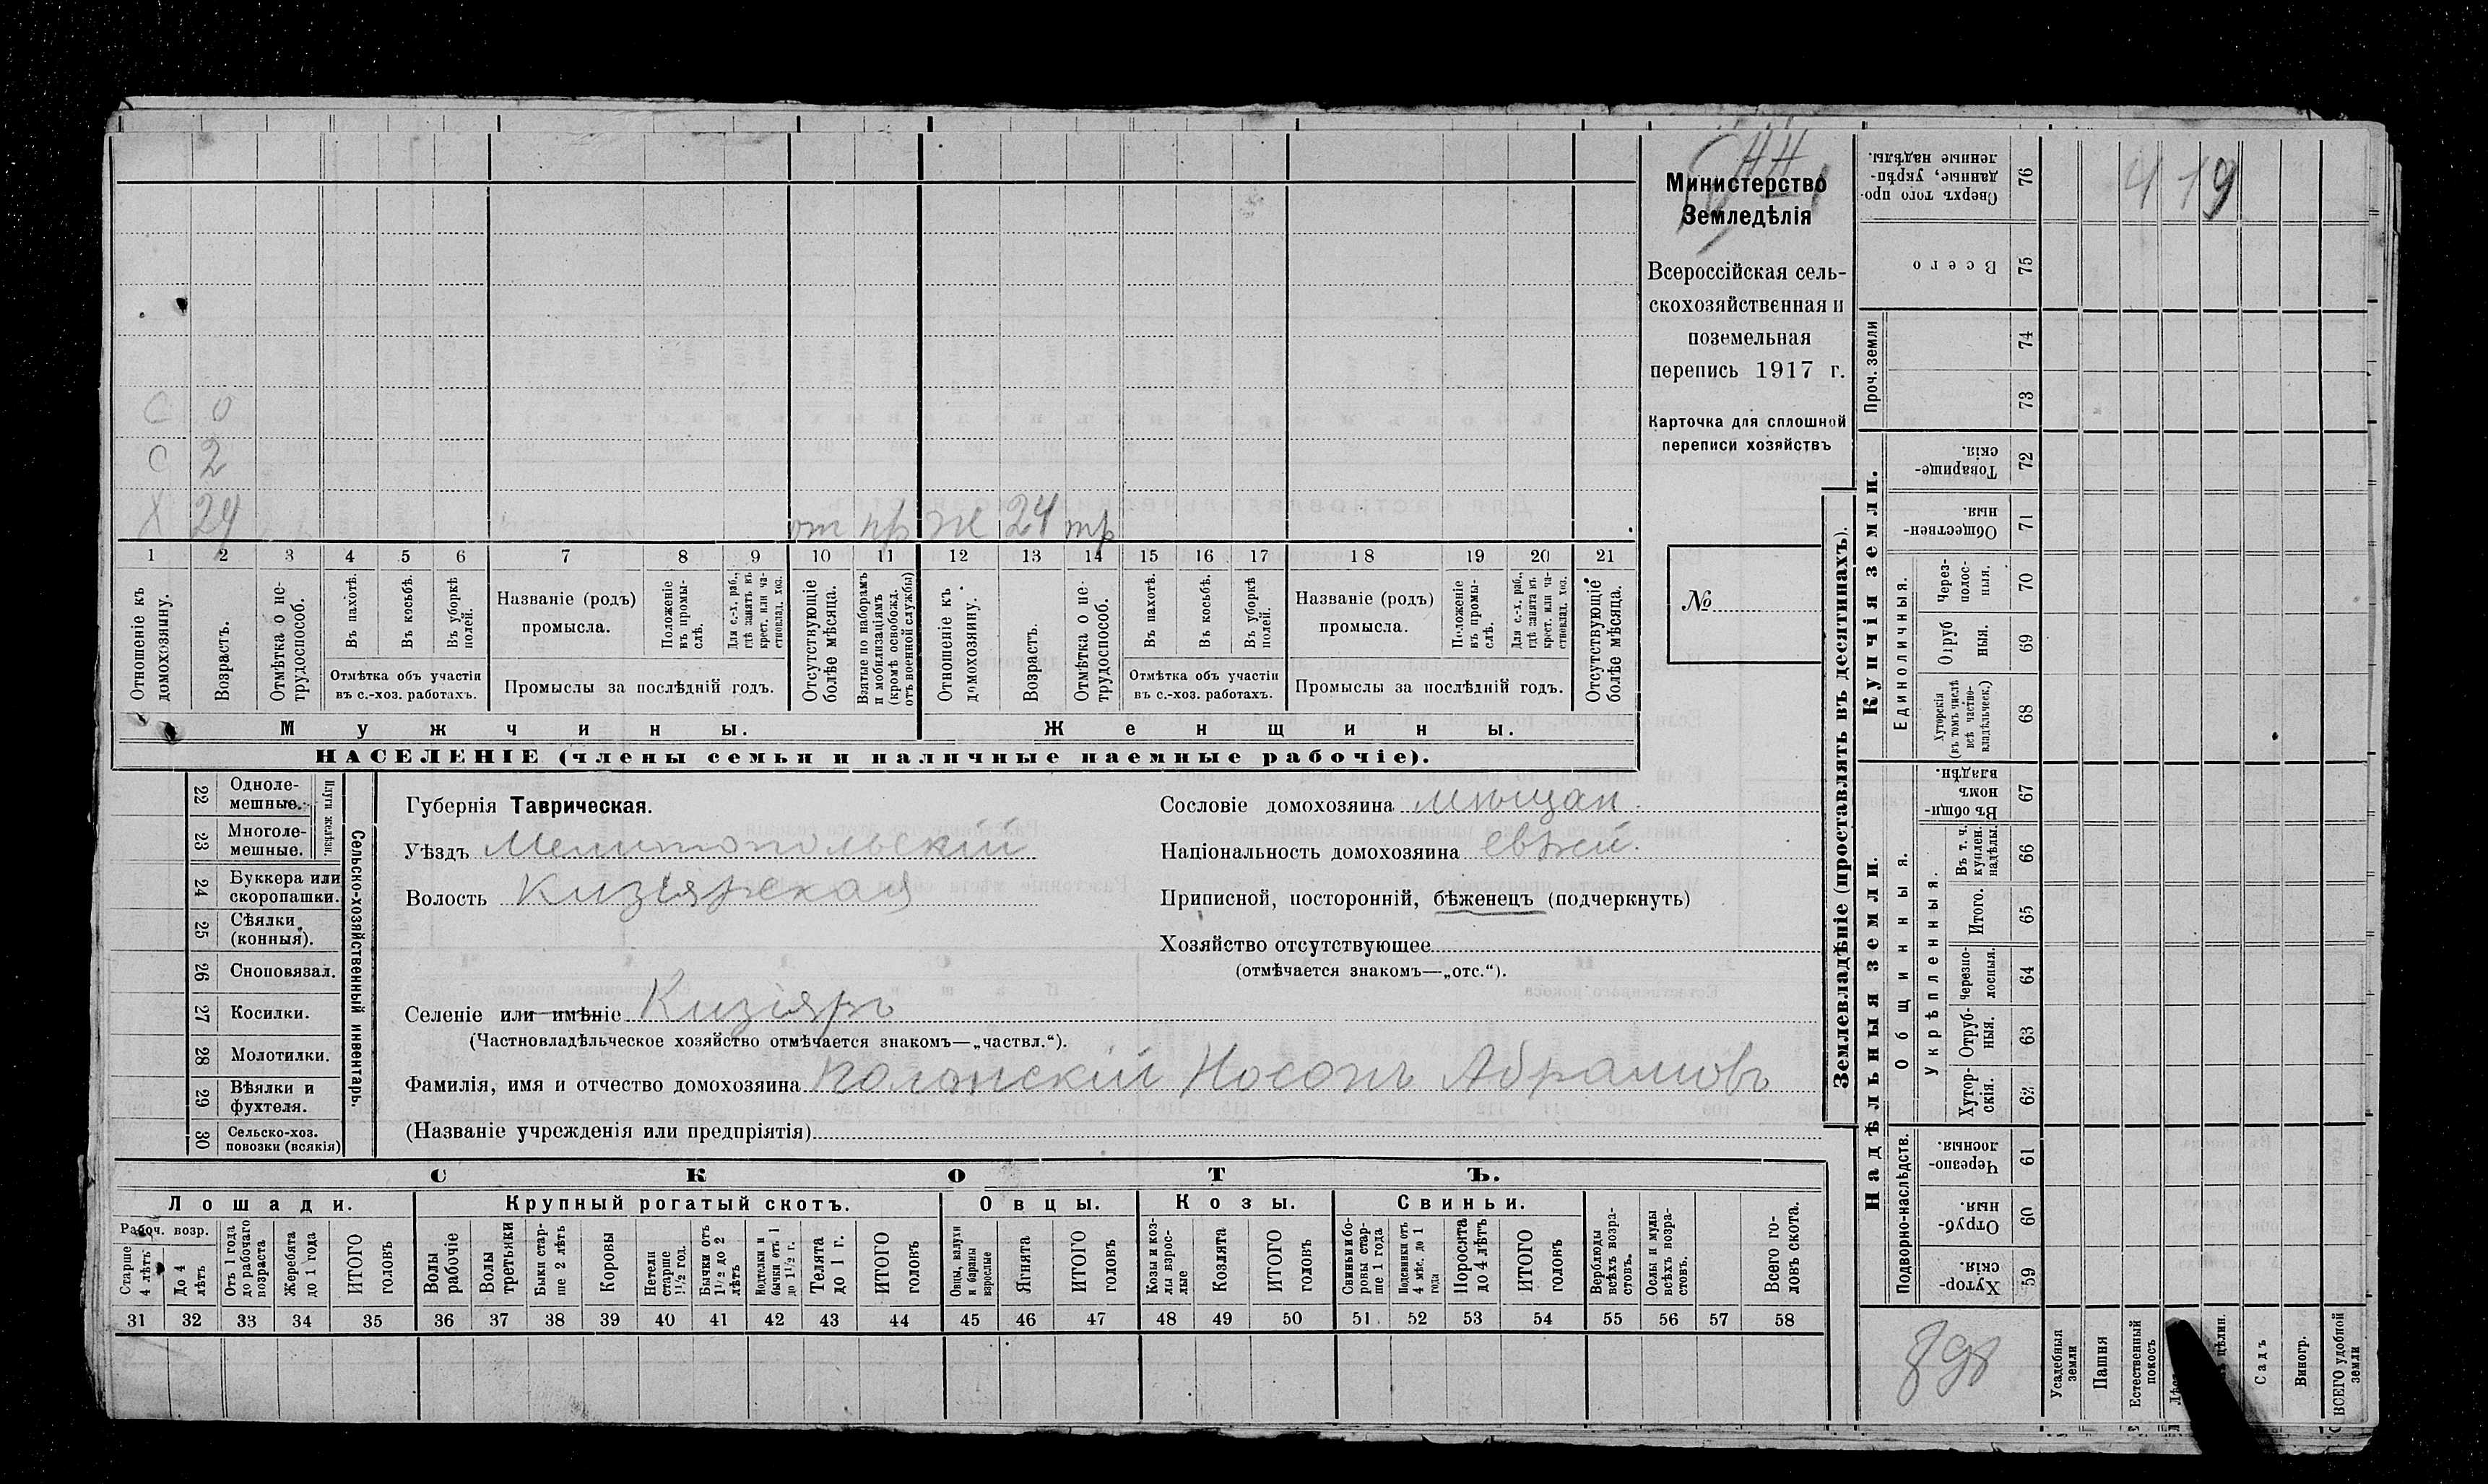 Министерство
Земледѣлія
Всероссійская сель-
скохозяйственная и
поземельная
перепись 1917 г.
Карточка для сплошной
переписи хозяйствъ
№
С 0
С 2
Х 29 от пр ж 24 тр
1 2 3 4 5 6 7 8 9 10 11 12 13 14 15 16 17 18 19 20 21
Отношеніе къ домохозяину.
Возрастъ.
Отмѣтка о не-трудоспособ.
Въ пахотѣ.
Въ косьбѣ.
Въ уборкѣ полей.
Отмѣтка объ участіи
въ с.-хоз. работахъ.
Названіе (родъ)
промысла.
Положеніе въ промы-слѣ.
Для с.-х. раб., гдѣ занятъ въ крест. или ча-стновлад. хоз.
Промыслы за послѣдній годъ.
Отсутствующіе болѣе мѣсяца.
Взятые по наборамъ и мобилизаціямъ (кромѣ освобожд. отъ военной службы)
Отношеніе къ домохозяину.
Возрастъ.
Отмѣтка о не-трудоспособ.
Въ пахотѣ.
Въ косьбѣ.
Въ уборкѣ полей.
Отмѣтка объ участіи
въ с.-хоз. работахъ.
Названіе (родъ)
промысла.
Положеніе въ промы-слѣ.
Для с.-х. раб., гдѣ занята въ крест. или ча-стновлад. хоз.
Промыслы за послѣдній годъ.
Отсутствующіе болѣе мѣсяца.
Мужчины. Женщины.
НАСЕЛЕНІЕ (члены семьи и наличные наемные рабочіе).
22 Одноле-мешные.
23 Многоле-мешные.
Плуги желѣзн.
24 Буккера или скоропашки.
25 Сѣялки (конныя).
26 Сноповязал.
27 Косилки.
28 Молотилки.
29 Вѣялки и фухтеля.
30 Сельско-хоз. повозки (всякія)
Сельско-хозяйственный инвентарь.
Губернія Таврическая.
Уѣздъ Мелитопольскій
Волость Кизіярская
Сословіе домохозяина мѣщан.
Національность домохозяина еврей.
Приписной, посторонній, бѣженецъ (подчеркнуть)
Хозяйство отсутствующее
(отмѣчается знакомъ—„отс.“).
Селеніе или имѣніе Кизіяръ
(Частновладѣльческое хозяйство отмѣчается знакомъ—„частвл.“).
Фамилія, имя и отчество домохозяина Полонскій Носонъ Абрамовъ
(Названіе учрежденія или предпріятія)
СКОТЪ.
Лошади. Крупный рогатый скотъ. Овцы. Козы. Свиньи.
Рабоч. возр.
Старше 4 лѣтъ
До 4 лѣтъ
Отъ 1 года до рабочаго возраста
Жеребята до 1 года
ИТОГО головъ
Волы рабочіе
Волы третьяки
Быки стар-ше 2 лѣтъ
Коровы
Нетели старше 1½ год.
Бычки отъ 1½ до 2 лѣтъ
Подтелки и бычки отъ 1 до 1½ г.
Телята до 1 г.
ИТОГО головъ
Овцы, валухи и бараны взрослые
Ягнята
ИТОГО головъ
Козы и коз-лы взрос-лые
Козлята
ИТОГО головъ
Свиньи и бо-ровы стар-ше 1 года
Подсвинки отъ 4 мѣс. до 1 года
Поросята до 4 лѣтъ
ИТОГО головъ
Верблюды всѣхъ возра-стовъ.
Ослы и мулы всѣхъ возра-стовъ.
Всего го-ловъ скота.
31 32 33 34 35 36 37 38 39 40 41 42 43 44 45 46 47 48 49 50 51 52 53 54 55 56 57 58
Землевладѣніе (проставлять въ десятинахъ).
Сверхъ того про-данные, укрѣп-ленные надѣлы. 76
419
Всего 75
Проч. земли 74 73
Купчія земли.
Товарище-скія. 72
Обществен-ныя. 71
Единоличныя.
Через-полос-ныя. 70
Отруб ныя. 69
Хуторскія (въ томъ числѣ всѣ частно-владѣльческ.) 68
Надѣльныя земли.
Общинныя.
Въ общи-номъ владѣн. 67
Укрѣпленныя.
Въ т. ч. куплен. надѣлы. 66
Итого. 65
Черезпо-лосныя. 64
Отруб-ныя. 63
Хутор-скія. 62
Подворно-наслѣдств.
Черезпо-лосныя. 61
Отруб-ныя. 60
Хутор-скія. 59
898
Усадебныя земли
Пашня
Естественный покосъ
Садъ
Виногр.
ВСЕГО удобной земли